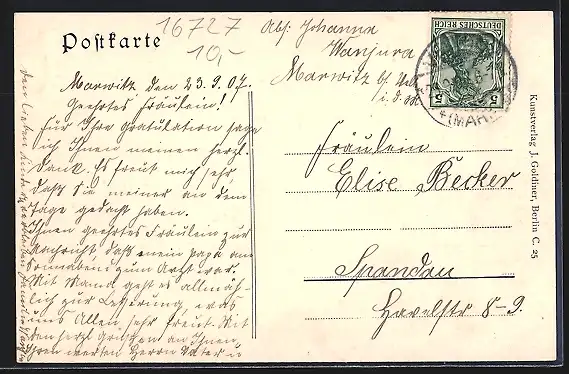 16727
10,-
Postkarte
Abs: Johanna
Wanjura
Marwitz b/
i. d. M.
DEUTSCHES REICH
5 5
(MARK)
Marwitz den 23.9.07.
Geehrtes Fräulein!
Für Ihre Gratulation sage
ich Ihnen meinen herzl.
Dank. Es freut mich sehr,
daß Sie meiner an dem
Tage gedacht haben.
Ihnen geehrtes Fräulein zur
Nachricht daß mein Papa am
Sonnabend zum Arzt war.
Mit Mama geht es allmäh-
lich zur Besserung, was
uns Allen sehr freut. Mit
den herzl. Grüßen an Ihnen,
Ihren werten Herrn Vater u
Fräulein
Elise Becker
Spandau
Havelstr 8-9.
Kunstverlag J. Goldiner, Berlin C. 25